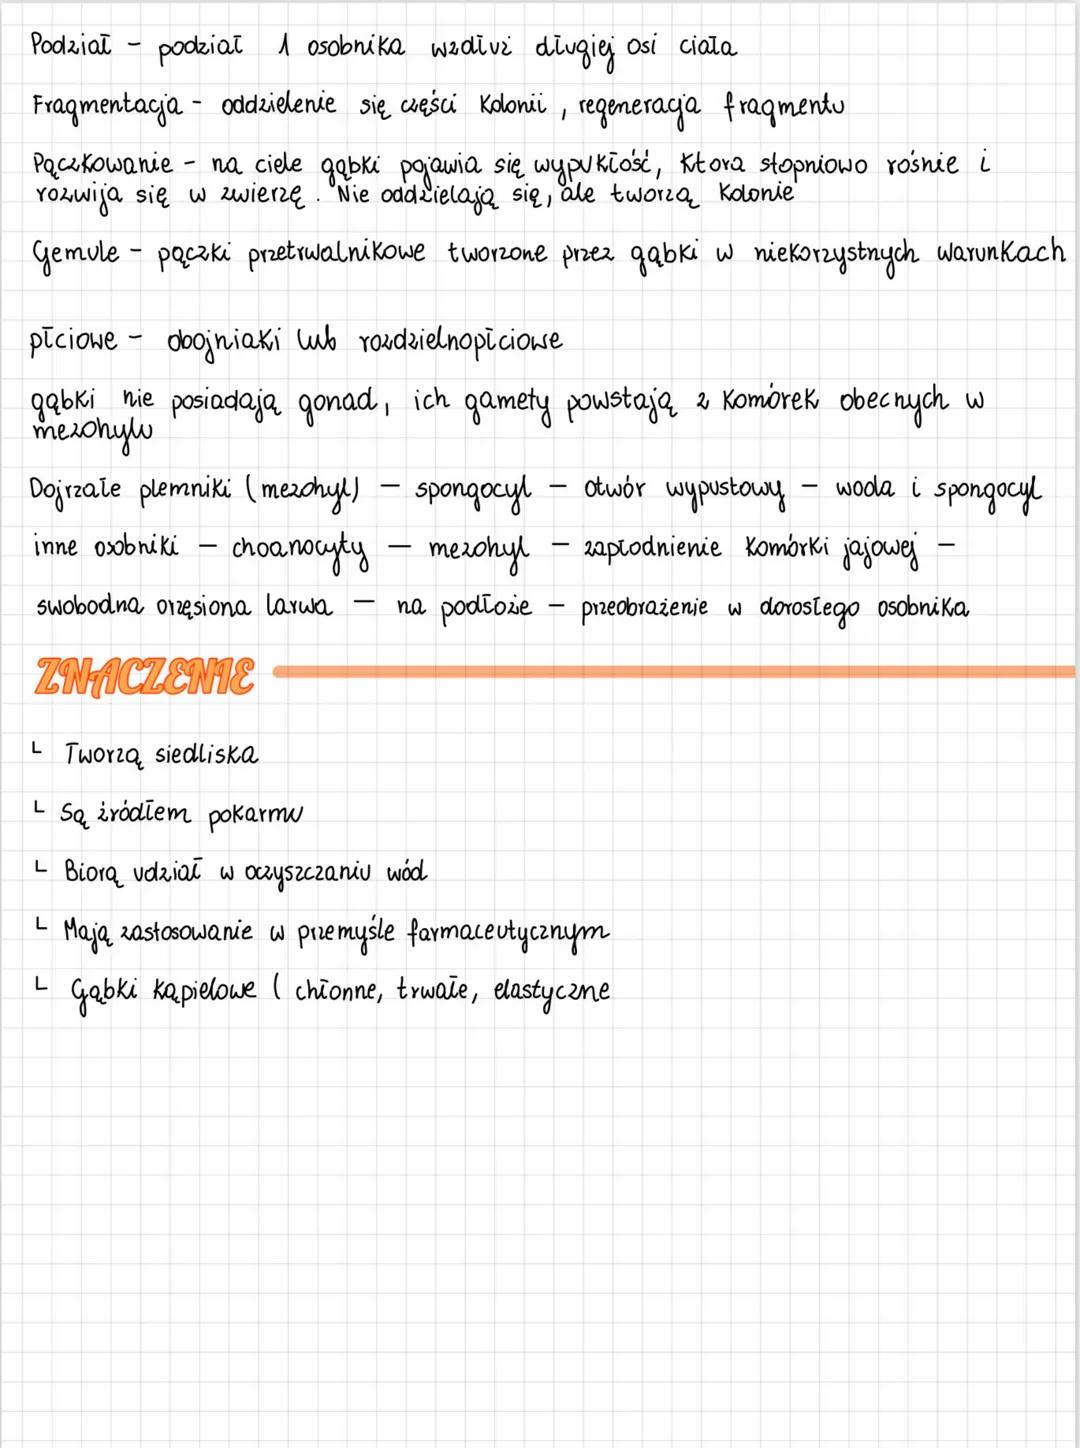 Podział - podział 1 osobnika wzdłuż długiej osi ciała
Fragmentacja - oddzielenie się części kolonii, regeneracja fragmentu
Pączkowanie - na ciele gąbki pojawia się wypukłość, która stopniowo rośnie i
rozwija się w zwierzę. Nie oddzielają się, ale tworzą kolonie
Gemule - pączki przetrwalnikowe tworzone przez gąbki w niekorzystnych warunkach
płciowe - obojniaki lub rozdzielnopłciowe
gąbki nie posiadają gonad, ich gamety powstają z komórek obecnych w
mezohylu
Dojrzałe plemniki (mezohyl) - spongocyl - otwór wypustowy - woda i spongocyl
inne osobniki - choanocyty - mezohyl - zapłodnienie komórki jajowej -
swobodna orzęsiona larwa - na podłoże - przeobrażenie w dorosłego osobnika
ZNACZENIE
└ Tworzą siedliska
└ Są źródłem pokarmu
└ Biorą udział w oczyszczaniu wód
└ Mają zastosowanie w przemyśle farmaceutycznym
└ Gąbki kąpielowe ( chłonne, trwałe, elastyczne